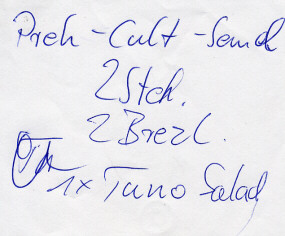 Preh-Cult-Send
2 Stck.
2 Brezl.
1x Tuno Salad